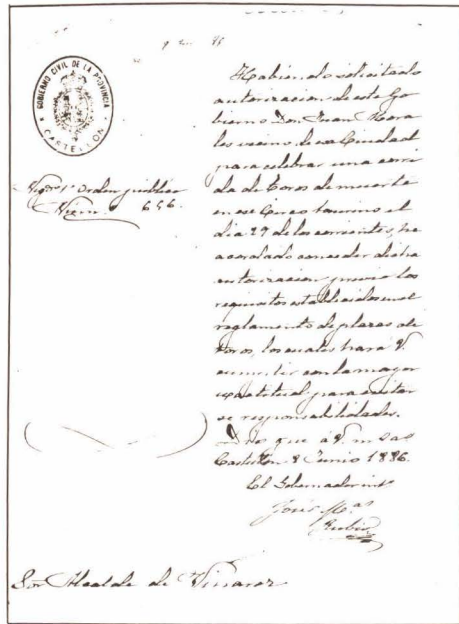 GOBIERNO CIVIL DE LA PROVINCIA
CASTELLON
Habiendo solicitado
autorizacion de este Go
bierno Don Juan Mora
les vecino de esa Ciudad
para celebrar una corri
da de toros de muerte
en ese Circo taurino el
dia 29 de los corrientes, he
acordado conceder dicha
autorizacion previo los
requisitos establecidos en el
reglamento de plazas de
toros, los cuales hará V.
cumplir con la mayor
exactitud para evitar
se responsabilidades.
Dios que á V. m s as
Castellon 8 Junio 1886.
El Gobernador int
José Mª
Rubio
Negdo 1º Orden publico
Núm. 656.
Sor Alcalde de Vinaroz